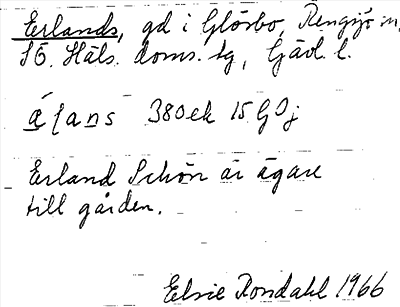 Erlands, gd i Glösbo, Rengsjö sn,
SÖ. Häls. doms. sg, Gävl. l.
á ̱ḻa̱ns 380 ek 15G5j
Erland Schön är ägare
till gården.
Elsie Rondahl 1966